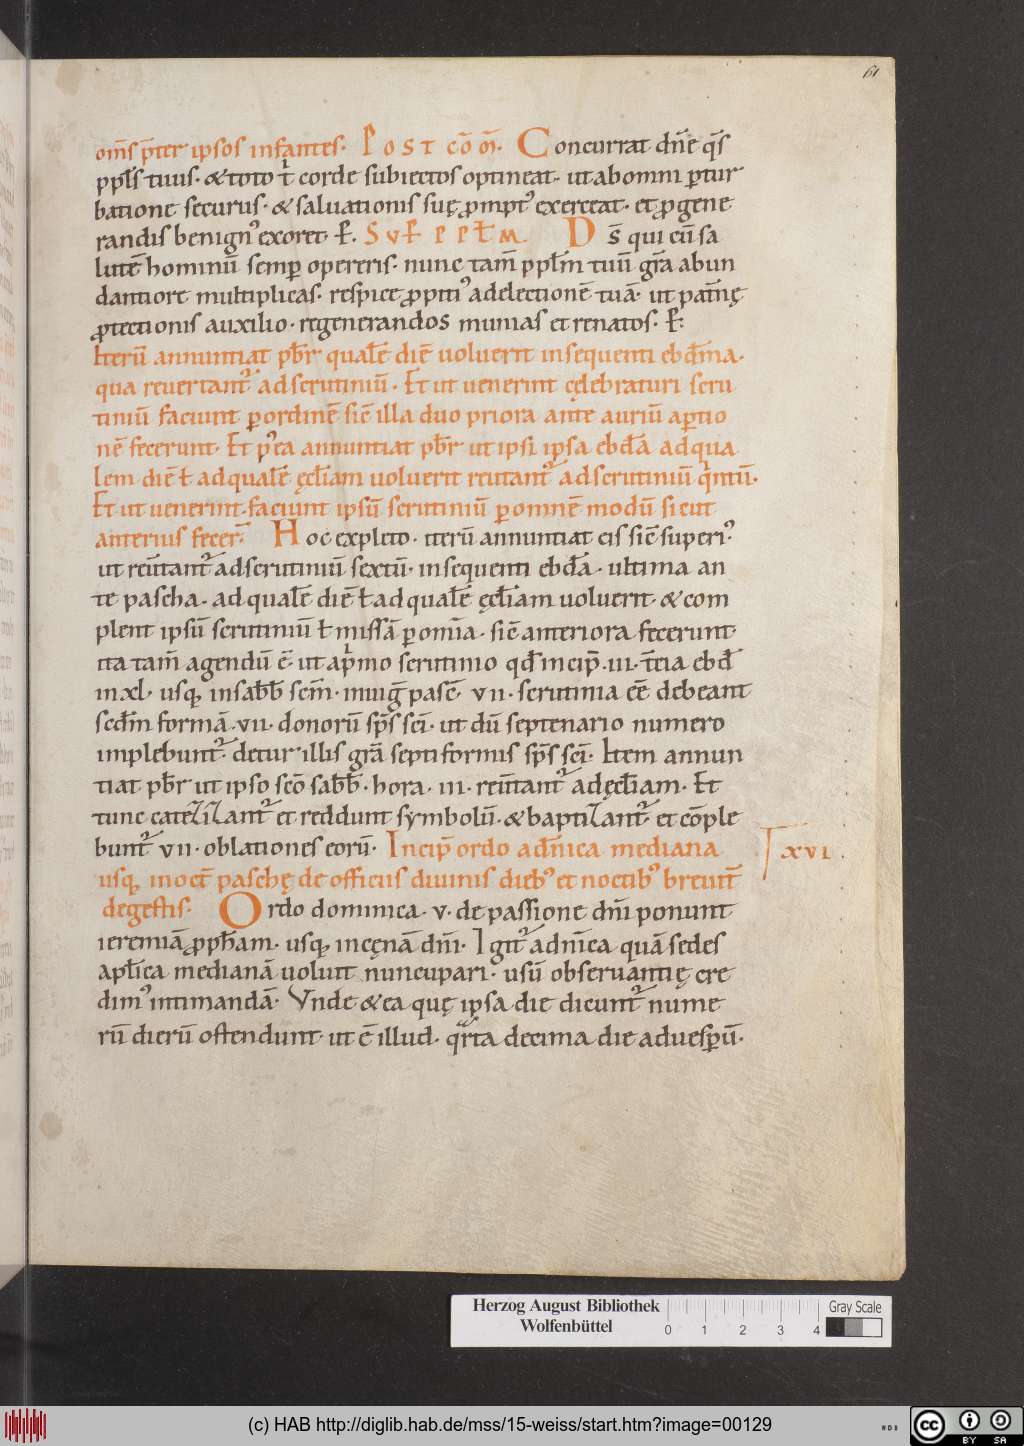 61
om̄s p̄ter ipsos infantes. Post cō m̄. Concurrat dn̄e q̄s
ppl̄s tuus. & toto t̄ corde subiectos optineat. ut abomni ꝑtur
batione securus. & saluationis suę ꝓmpt᾽ exerceat. et ꝓgene
randis benign᾽ exoret. ꝑ. Sup ppl̄m. Ds̄ qui cū sa
lutē hominū semꝑ opereris. nunc tam̄ ppl̄m tuū gr̄a abun
dantiore multiplicas. respice ꝓpiti᾽ adelectionē tuā. ut pat̄nę
ꝓtectionis auxilio. regenerandos munias et renatos. ꝑ.
Iterū annuntiat pb̄r qualē diē uoluerit insequenti ebd̄ma.
qua reuertant᾽ adscrutiniū. Et ut uenerint cęlebraturi scru
tiniū faciunt ꝑordinē sic̄ illa duo priora ante auriū aꝑtio
nē fecerunt. Et p᾽ea annuntiat pb̄r ut ipsi ipsa ebd̄a adqua
lem diē ł adqualē ęcl̄iam uoluerit reuitant᾽ adscrutiniū qͥntū.
Et ut uenerint. faciunt ipsū scrutiniū ꝑomnē modū sicut
anterius fecer̄. Hoc expleto. iterū annuntiat eis sic̄ superi᾽.
ut reūtant᾽ adscrutiniū sextū. insequenti ebd̄a. ultima an
te pascha. ad qualē diē ł ad qualē ęcl̄iam uoluerit. & com
plent ipsū scrutiniū ł missā ꝑ omīa. sic̄ anteriora fecerunt.
ita tam̄ agendū ē. ut apͥmo scrutinio qd̄ incip̄ .iii. t̄cia ebd̄
inxl. usq; insab̄b̄ sc̄m. inuig̃ pasc̄. vii. scrutinia eē debeant
scd̄m formā .vii. donorū sp̄s sc̄i. ut dū septenario numero
implebunt᾽. detur illis gr̄a septiformis sp̄s sc̄i. Item annun
tiat pb̄r ut ipso sc̄o sab̄b̄. hora. iii. reūtant᾽ adęcl̄iam. Et
tunc catezizant᾽ et reddunt symbolū. & baptizant᾽ et cōple
bunt᾽ vii. oblationes eorū. Incip̄ ordo adn̄ica mediana
usq; inoct̄ paschę de officiis diuinis dieb᾽ et noctib᾽ breuit̄
degestis. Ordo dominica. v. de passione dn̄i ponunt
xvi.
ieremiā ꝓph̄am. usq; incęnā dn̄i. Igit᾽ adn̄ica quā sedes
apl̄ica medianā uoluit nuncupari. usū obseruantię cre
dim᾽ intimandā. Vnde & ea quę ipsa die dicunt᾽ nume
rū dierū ostendunt. ut ē illud. qͣrta decima die aduesꝑū.
Herzog August Bibliothek
Wolfenbüttel
0 1 2 3 4
Gray Scale
(c) HAB http://diglib.hab.de/mss/15-weiss/start.htm?image=00129
cc BY SA